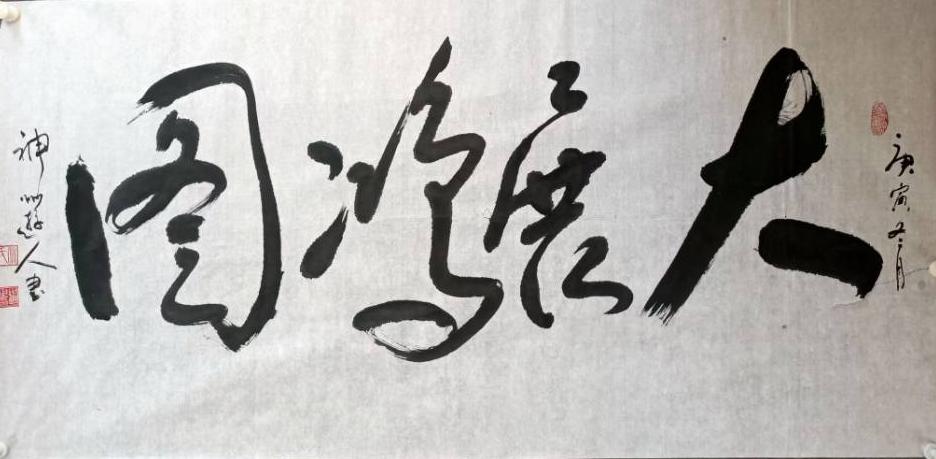 庚寅冬月
大展鸿图
神州艺人书